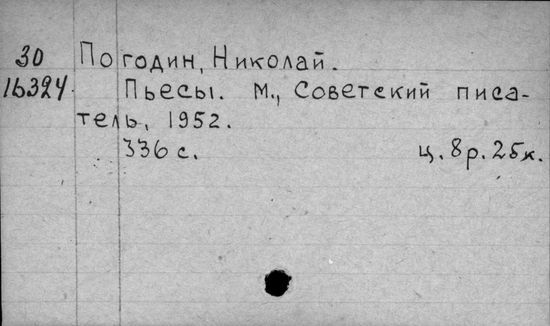 30 Погодин, Николай.
16324 Пьесы. М., Советский писа-
тель, 1952.
336 с. ц. 8 р. 25 к.